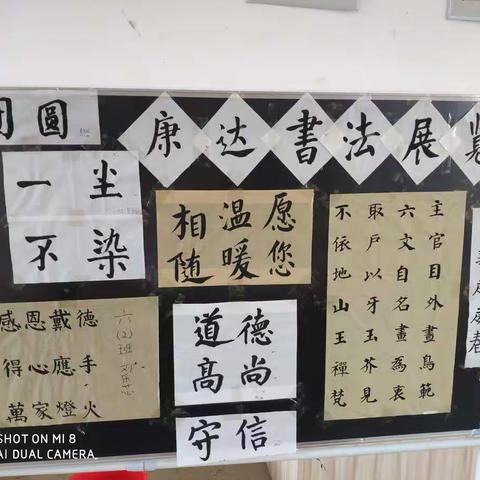 圓
康达書法展
一尘
不染
愿您
温暖
相随
主官目外畫鳥範
六文自名畫為衷
取戶以牙玉芥見
不依地山王禪梵
感恩戴德
得心應手
萬家燈火
六(2)班
道德
髙尚
守信
春
SHOT ON MI 8
AI DUAL CAMERA